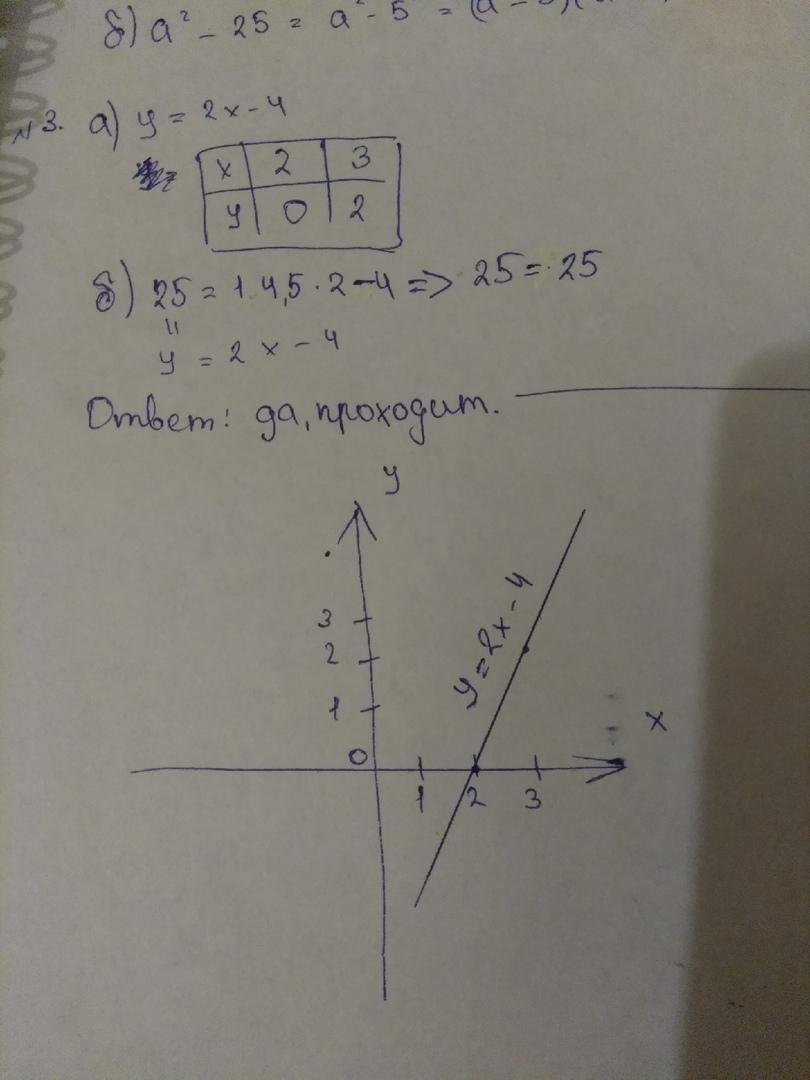 б) a² - 25 = a² - 5 = (a
№3. а) y = 2x - 4
x 2 3
y 0 2
б) 25 = 14,5 · 2 - 4 => 25 = 25
"
y = 2x - 4
Ответ: да, проходит.
y
y = 2x - 4
3
2
1
x
0
1 2 3